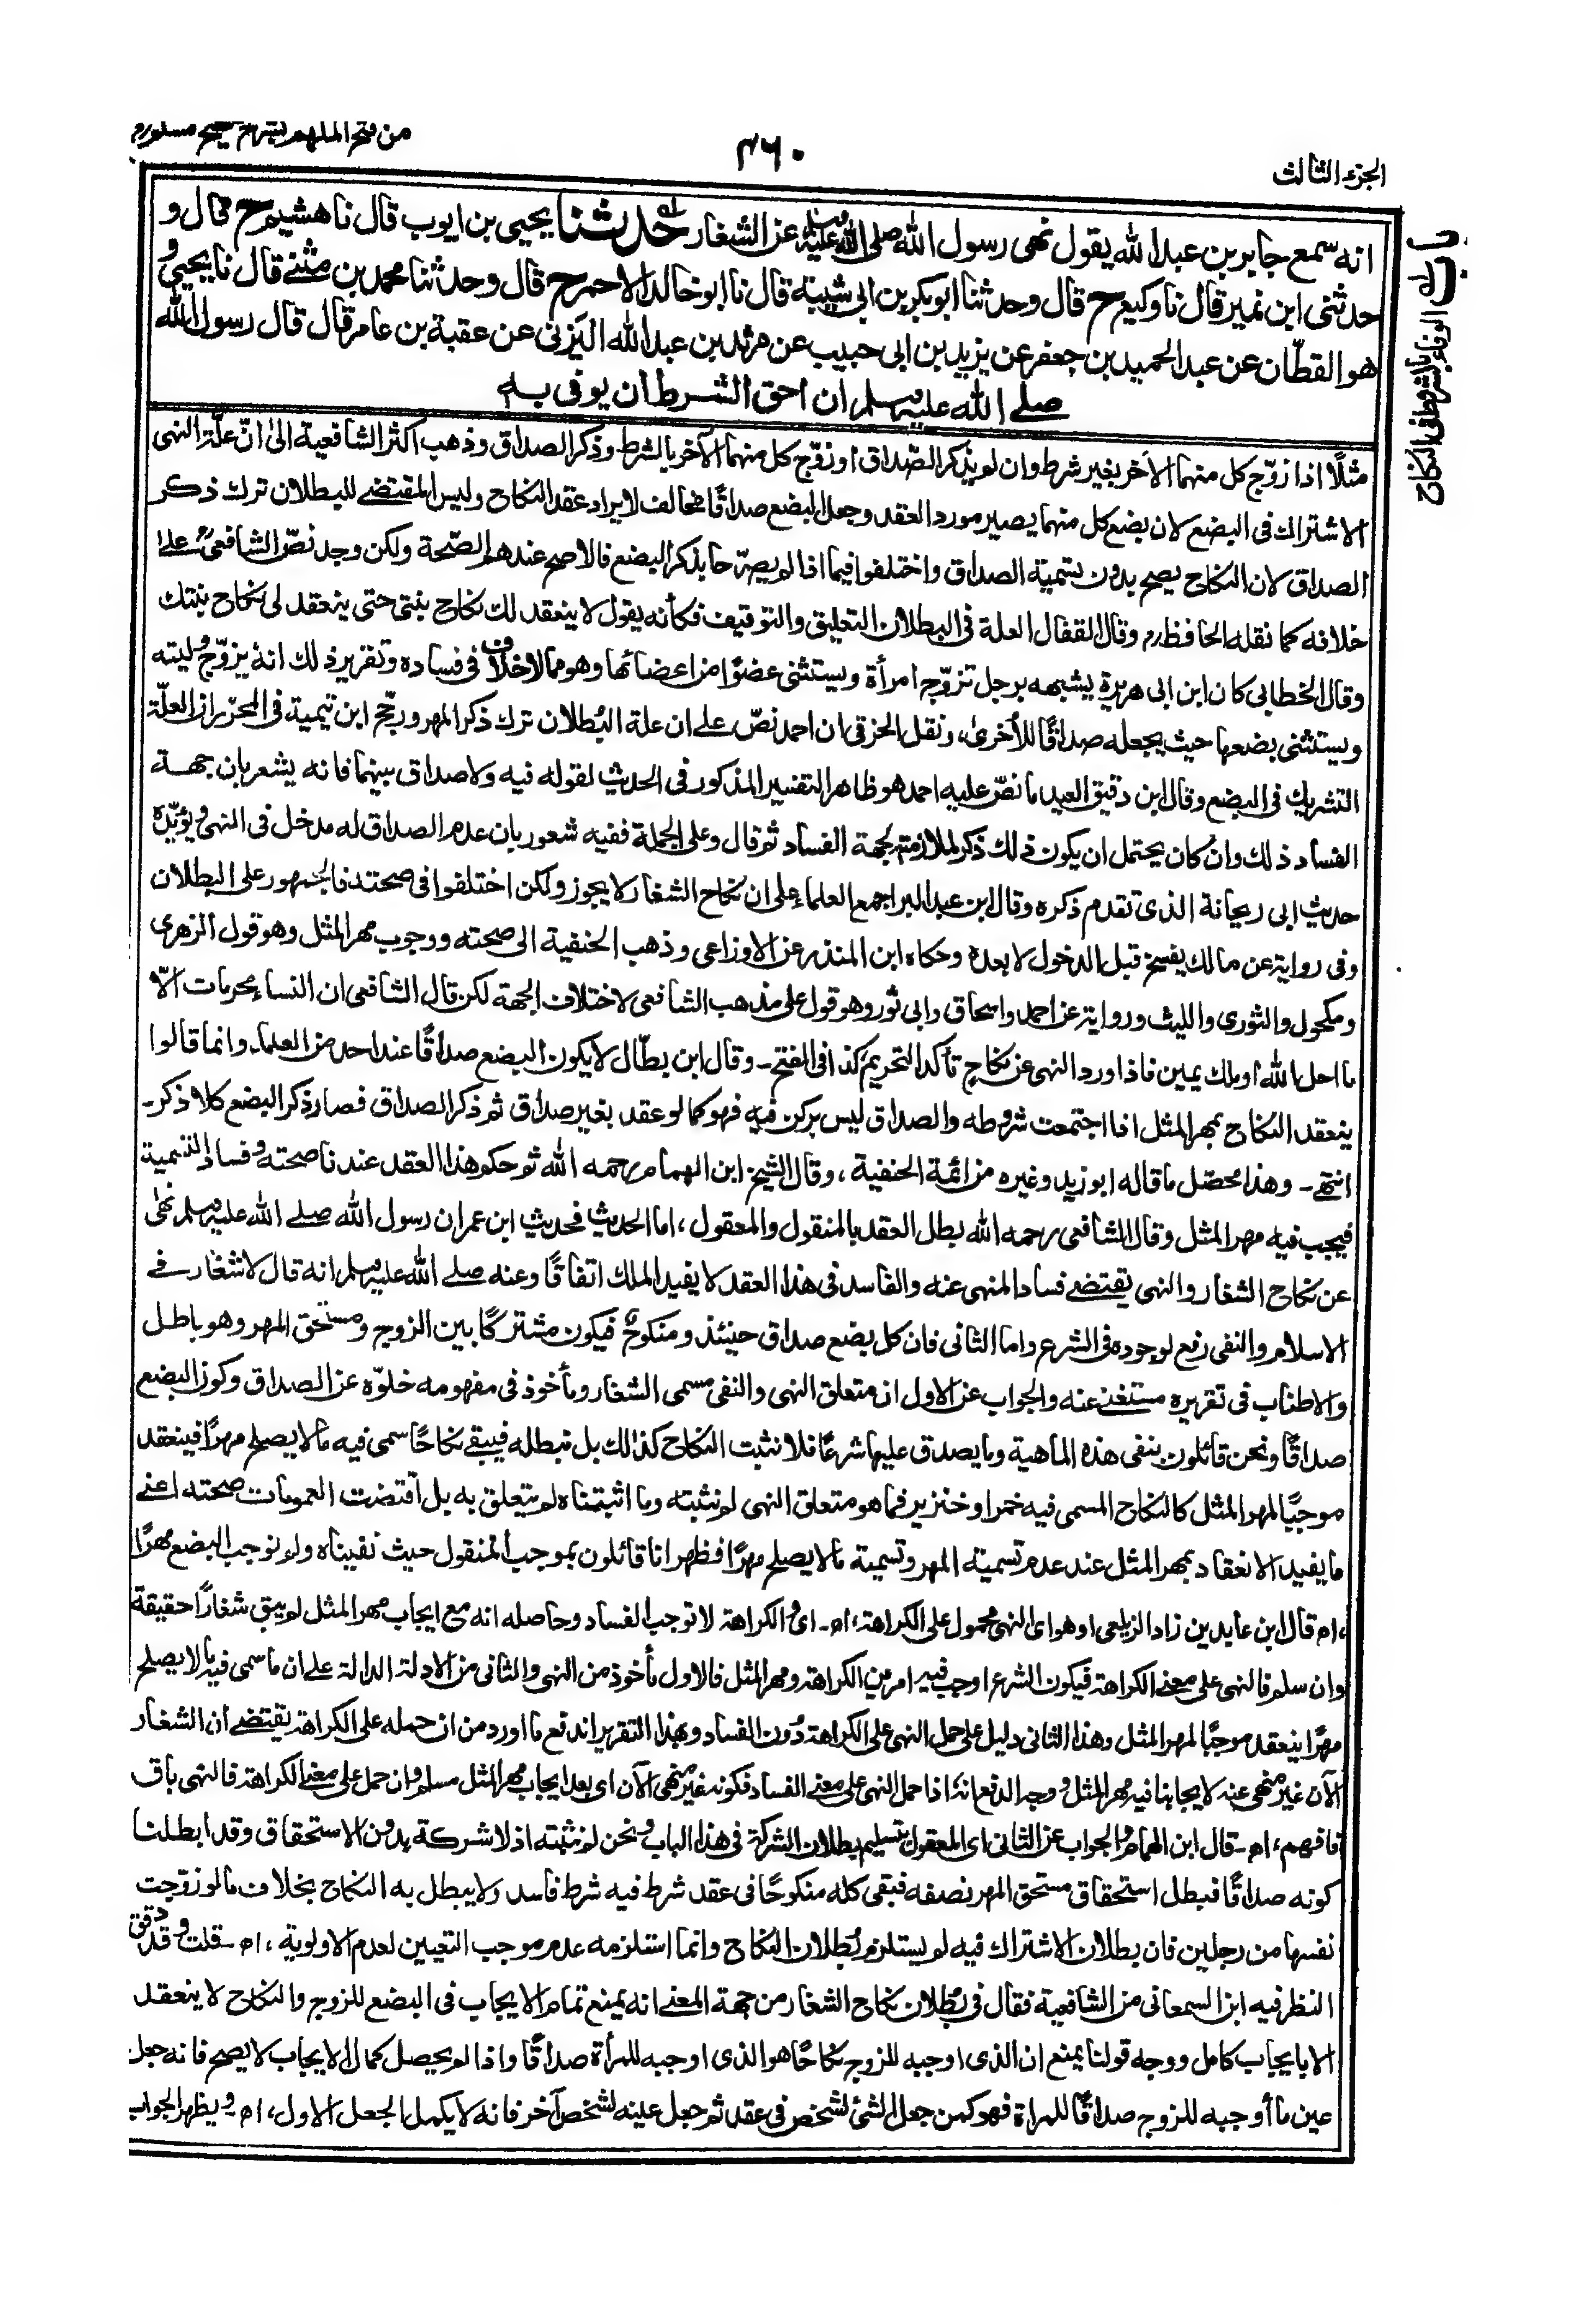 من فتح الملهم بشرح صحيح مسلم
٤٦٠
الجزء الثالث
باب الوفاء بالشروط فى النكاح
انه سمع جابر بن عبد الله يقول نهى رسول الله صلى الله عليه وسلم عن الشغار حدثنا يحيى بن ايوب قال نا هشيم ح قال و
حدثنى ابن نمير قال نا وكيع ح قال وحدثنا ابو بكر بن ابى شيبة قال نا ابو خالد الاحمر ح قال وحدثنا محمد بن مثنى قال نا يحيى و
هو القطّان عن عبد الحميد بن جعفر عن يزيد بن ابى حبيب عن مرثد بن عبد الله اليَزَنى عن عقبة بن عامر قال قال رسول الله
صلى الله عليه وسلم ان احق الشرط ان يوفى به
مثلًا اذا زوّج كل منهما الآخر بغير شرط وان لم يذكر الصّداق او زوّج كل منهما الآخر بالشرط وذكر الصداق وذهب اكثر الشافعية الىٰ انّ علّة النهى
الاشتراك فى البضع لان بضع كل منهما يصير مورد العقد وجعل البضع صداقًا مخالف لايراد عقد النكاح وليس المقتضى للبطلان ترك ذكر
الصداق لان النكاح يصح بدون تسمية الصداق واختلفوا فيما اذا لم يصرّحا بذكر البضع فالاصح عندهم الصّحة ولكن وجد نصّ الشافعىؒ على
خلافه كما نقله الحافظ رم وقال القفال العلة فى البطلان التعليق والتوقيف فكأنه يقول لا ينعقد لك نكاح بنتى حتى ينعقد لى نكاح بنتك
وقال الخطابى كان ابن ابى هريرة يشبهه برجل تزوّج امرأة ويستثنى عضوًا من اعضائها وهو مما لا خلاف فى فساده وتقرير ذلك انهٗ يزوّج وليته
ويستثنى بضعها حيث يجعله صداقًا للأخرىٰ، ونقل الخرقى ان احمد نصّ على ان علة البُطلان ترك ذكر المهر ورجّح ابن تيمية فى المحرّر ان العلّة
التشريك فى البضع وقال ابن دقيق العيد ما نصّ عليه احمد هو ظاهر التفسير المذكور فى الحديث لقوله فيه ولا صداق بينهما فانه يشعر بان جهة
الفساد ذلك وان كان يحتمل ان يكون ذلك ذكر لملازمته لجهة الفساد ثم قال وعلى الجملة ففيه شعور بان عدم الصداق له مدخل فى النهى ويؤيّده
حديث ابى ريحانة الذى تقدم ذكره وقال ابن عبد البر اجمع العلماء على ان نكاح الشغار لا يجوز ولكن اختلفوا فى صحته فالجمهور على البطلان
وفى رواية عن مالك يفسخ قبل الدخول لا بعده وحكاه ابن المنذر عن الاوزاعى وذهب الحنفية الى صحته ووجوب مهر المثل وهو قول الزهرى
ومكحول والثورى والليث ورواية عن احمد واسحاق وابى ثور وهو قول على مذهب الشافعى لاختلاف الجهة لكن قال الشافعى ان النساء محرمات الّا
ما احل الله او ملك يمين فاذا ورد النهى عن نكاح تأكد التحريم كذا فى الفتح۔ وقال ابن بطّال لا يكون البضع صداقًا عند احد من العلماء وانما قالوا
ينعقد النكاح بمهر المثل اذا اجتمعت شروطه والصداق ليس بركن فيه فهو كما لو عقد بغير صداق ثم ذكر الصداق فصار ذكر البضع كلا ذكر۔
انتهى۔ وهذا محصّل ما قاله ابو زيد وغيره من ائمة الحنفية، وقال الشيخ ابن الهمام رحمه الله ثم حكم هذا العقد عندنا صحته وفساد التسمية
فيجب فيه مهر المثل وقال الشافعى رحمه الله بطل العقد بالمنقول والمعقول، اما الحديث فحديث ابن عمر ان رسول الله صلى الله عليه وسلم نهٰى
عن نكاح الشغار والنهى يقتضى فساد المنهى عنه والفاسد فى هذا العقد لا يفيد الملك اتفاقًا وعنه صلى الله عليه وسلم انه قال لا شغار فى
الاسلام والنفى رفع لوجوده فى الشرع واما الثانى فان كل بضع صداق حينئذ ومنكوحٌ فيكون مشتركًا بين الزوج ومستحق المهر وهو باطل
والاطناب فى تقريره مستغنى عنه والجواب عن الاول ان متعلق النهى والنفى مسمى الشغار ومأخوذ فى مفهومه خلوّه عن الصداق وكون البضع
صداقًا ونحن قائلون بنفى هذه الماهية وما يصدق عليها شرعًا فلا نثبت النكاح كذالك بل نبطله فيبقى نكاحًا سمى فيه ما لا يصلح مهرًا فينعقد
موجبًا لمهر المثل كالنكاح المسمى فيه خمر او خنزير فما هو متعلق النهى لم نثبته وما اثبتناه لم يتعلق به بل اقتضت العمومات صحته اعنى
ما يفيد الانعقاد بمهر المثل عند عدم تسمية المهر وتسمية ما لا يصلح مهرًا فظهر انا قائلون بموجب المنقول حيث نفيناه ولم نوجب البضع مهرًا
،اه قال ابن عابدين زاد الزيلعى او هو اى النهى محمول على الكراهة، اه۔ اى والكراهة لا توجب الفساد وحاصله انه مع ايجاب مهر المثل لم يبق شغارًا حقيقة
وان سلم فالنهى على معنى الكراهة فيكون الشرع اوجب فيه امرين الكراهة ومهر المثل فالاول مأخوذ من النهى والثانى من الادلة الدالة على ان ما سمى فيه ما لا يصلح
مهرًا ينعقد موجبًا لمهر المثل وهذا الثانى دليل على حمل النهى على الكراهة دُون الفساد وبهذا التقرير اندفع ما اورد من ان حمله على الكراهة يقتضى ان الشغار
الآن غير منهى عنه لايجابنا فيه مهر المثل ووجه الدفع انه اذا حمل النهى على معنى الفساد فكونه غير منهى الآن اى بعد ايجاب مهر المثل مسلم وان حمل على معنى الكراهة فالنهى باق
فافهم، اه۔ قال ابن الهمام والجواب عن الثانى اى المعقول بتسليم بطلان الشركة فى هذا الباب ونحن لم نثبته اذ لا شركة بدون الاستحقاق وقد ابطلنا
كونه صداقًا فبطل استحقاق مستحق المهر نصفه فبقى كله منكوحًا فى عقد شرط فيه شرط فاسد ولا يبطل به النكاح بخلاف ما لو زوّجت
نفسها من رجلين فان بطلان الاشتراك فيه لم يستلزم بُطلان النكاح وانما استلزمه عدم موجب التعيين لعدم الاولوية، اه۔ قلت وقد دقق
النظر فيه ابن السمعانى من الشافعية فقال فى بُطلان نكاح الشغار من جهة المعنى انه يمنع تمام الايجاب فى البضع للزوج والنكاح لا ينعقد
الا بايجاب كامل ووجه قولنا يمنع ان الذى اوجبه للزوج نكاحًا هو الذى اوجبه للمرأة صداقًا واذا لم يحصل كمال الايجاب لا يصح فانه جعل
عين ما أوجبه للزوج صداقًا للمراة فهو كمن جعل الشئ لشخص فى عقد ثم جعل عينه لشخص آخر فانه لا يكمل الجعل الاول، اه۔ ويظهر الجواب